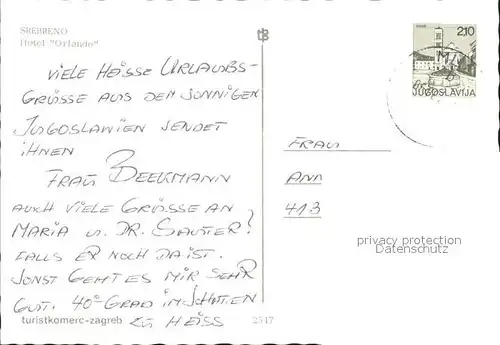 SREBRENO
Hotel "Orlando"
VIELE HEISSE URLAUBS-
GRÜSSE AUS DEM SONNIGEN
JUGOSLAWIEN SENDET
IHNEN
FRAU BEEKMANN
AUCH VIELE GRÜSSE AN
MARIA u. DR. SAUTER!
FALLS ER NOCH DA IST.
SONST GEHT ES MIR SEHR
GUT. 40° GRAD IM SCHATTEN
ZU HEISS
turistkomerc-zagreb
2517
tB
2.10
JUGOSLAVIJA
FRAU
ANN
413
privacy protection
Datenschutz